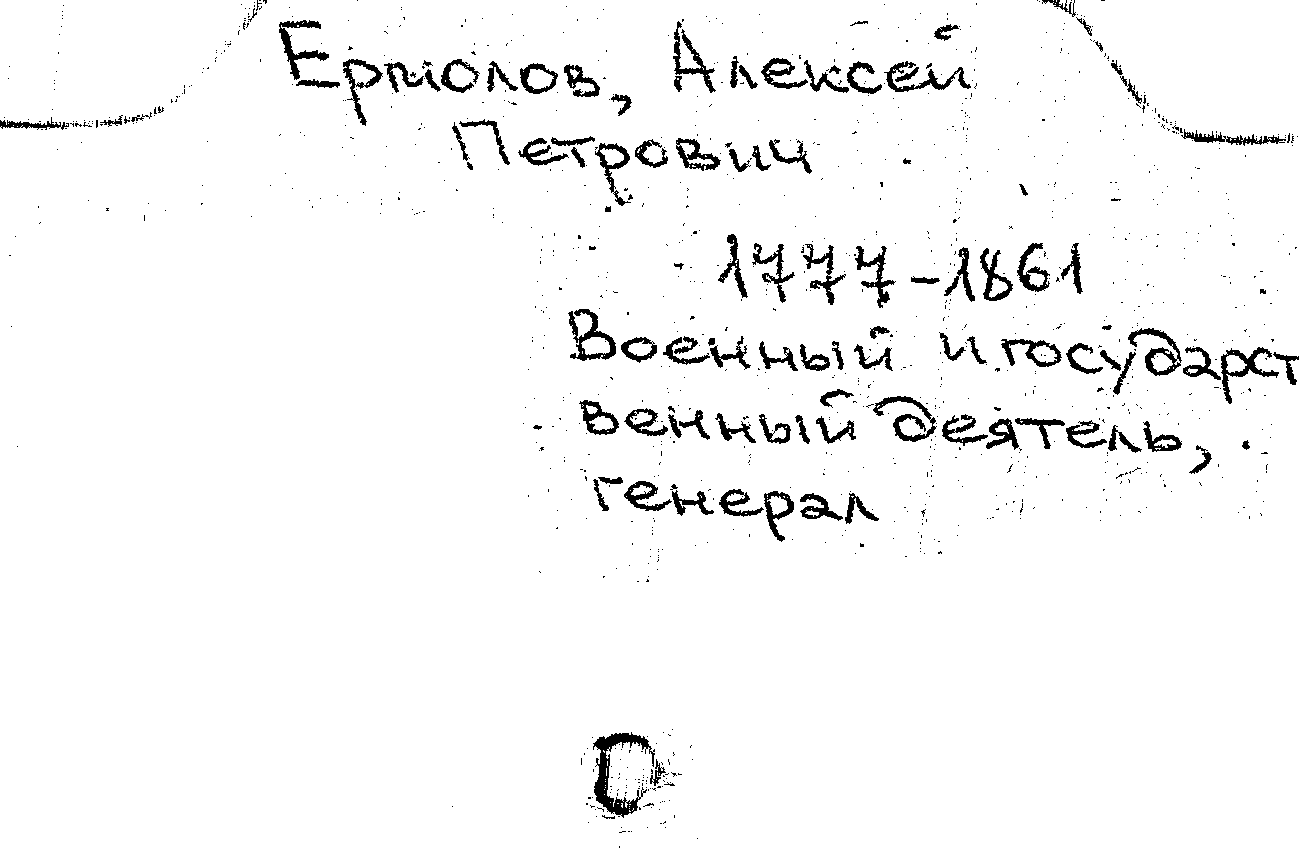 Ермолов, Алексей
Петрович
1777-1861
Военный и государст
венный деятель,
генерал